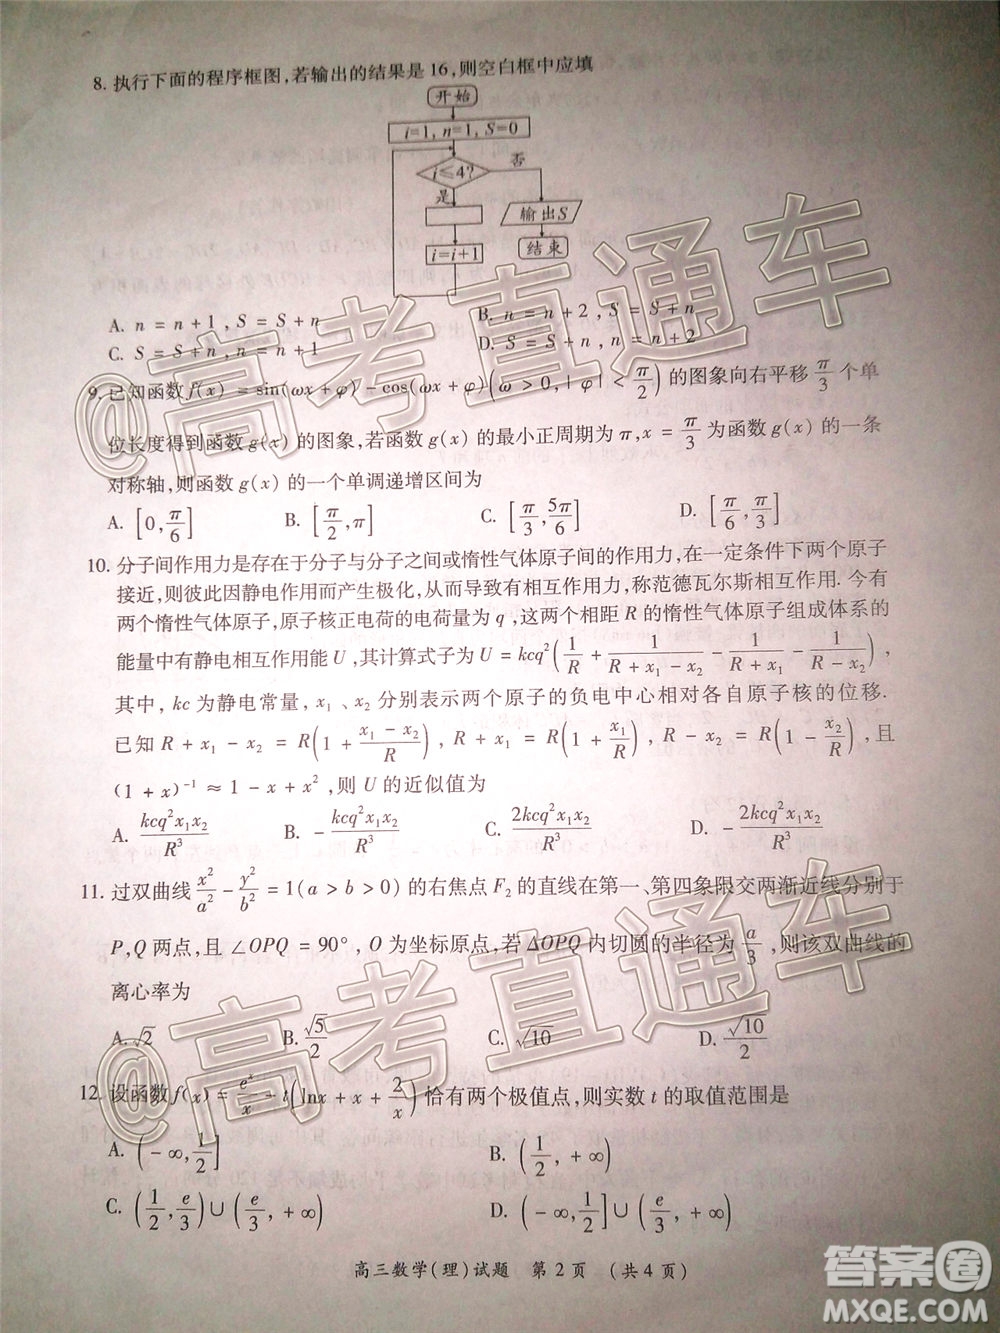 8. 执行下面的程序框图,若输出的结果是16,则空白框中应填
开始
i=1, n=1, S=0
i≤4?
否
是
输出S
i=i+1
结束
A. n = n + 1 , S = S + n
B. n = n + 2 , S = S + n
C. S = S + n , n = n + 1
D. S = S + n , n = n + 2
9. 已知函数 f(x) = sin(ωx + φ) - cos(ωx + φ)(ω > 0, |φ| < π/2) 的图象向右平移 π/3 个单
位长度得到函数 g(x) 的图象,若函数 g(x) 的最小正周期为 π, x = π/3 为函数 g(x) 的一条
对称轴,则函数 g(x) 的一个单调递增区间为
A. [0, π/6]
B. [π/2, π]
C. [π/3, 5π/6]
D. [π/6, π/3]
10. 分子间作用力是存在于分子与分子之间或惰性气体原子间的作用力,在一定条件下两个原子
接近,则彼此因静电作用而产生极化,从而导致有相互作用力,称范德瓦尔斯相互作用. 今有
两个惰性气体原子,原子核正电荷的电荷量为 q ,这两个相距 R 的惰性气体原子组成体系的
能量中有静电相互作用能 U ,其计算式子为 U = kcq²(1/R + 1/(R + x₁ - x₂) - 1/(R + x₁) - 1/(R - x₂)) ,
其中, kc 为静电常量, x₁ 、x₂ 分别表示两个原子的负电中心相对各自原子核的位移.
已知 R + x₁ - x₂ = R(1 + (x₁ - x₂)/R) , R + x₁ = R(1 + x₁/R) , R - x₂ = R(1 - x₂/R) ,且
(1 + x)⁻¹ ≈ 1 - x + x² ,则 U 的近似值为
A. kcq²x₁x₂/R³
B. - kcq²x₁x₂/R³
C. 2kcq²x₁x₂/R³
D. - 2kcq²x₁x₂/R³
11. 过双曲线 x²/a² - y²/b² = 1(a > b > 0) 的右焦点 F₂ 的直线在第一、第四象限交两渐近线分别于
P,Q 两点,且 ∠OPQ = 90°, O 为坐标原点,若 ΔOPQ 内切圆的半径为 a/3 ,则该双曲线的
离心率为
A. √2
B. √5/2
C. √10
D. √10/2
12. 设函数 f(x) = eˣ/x - t(lnx + x + 2/x) 恰有两个极值点,则实数 t 的取值范围是
A. (-∞, 1/2]
B. (1/2, +∞)
C. (1/2, e/3) ∪ (e/3, +∞)
D. (-∞, 1/2] ∪ (e/3, +∞)
高三数学(理)试题 第 2 页 (共 4 页)
@高考直通车
@高考直通车
答案圈
MXQE.COM